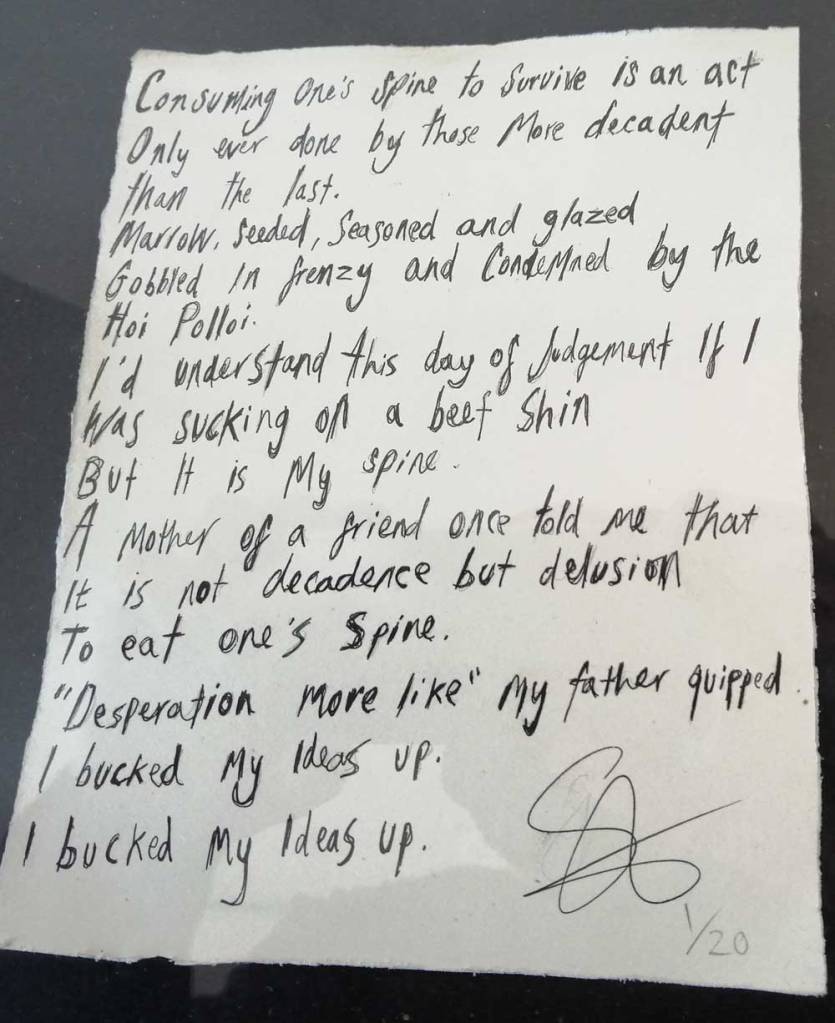 Consuming one's spine to survive is an act
Only ever done by those more decadent
than the last.
Marrow, seeded, seasoned and glazed
Gobbled in frenzy and condemned by the
Hoi Polloi.
I'd understand this day of judgement if I
was sucking on a beef shin
But it is my spine.
A mother of a friend once told me that
it is not decadence but delusion
To eat one's spine.
"Desperation more like" my father quipped.
I bucked my ideas up.
I bucked my ideas up.
1/20